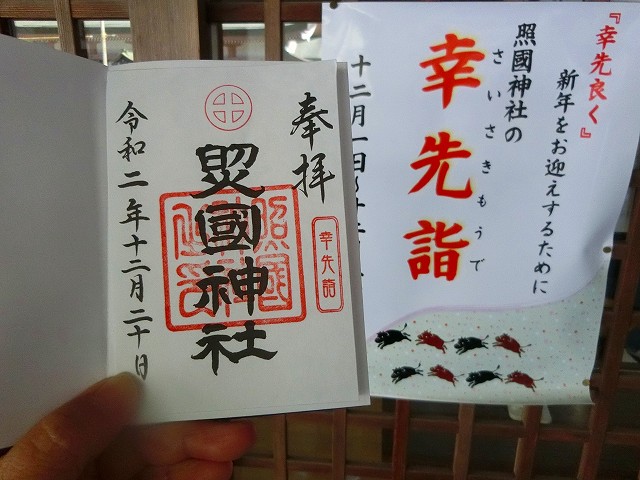 奉拝
幸先詣
照國神社
照國神社
令和二年十二月二十日
『幸先良く』
新年をお迎えするために
照國神社の
さいさきもうで
幸先詣
十二月一日